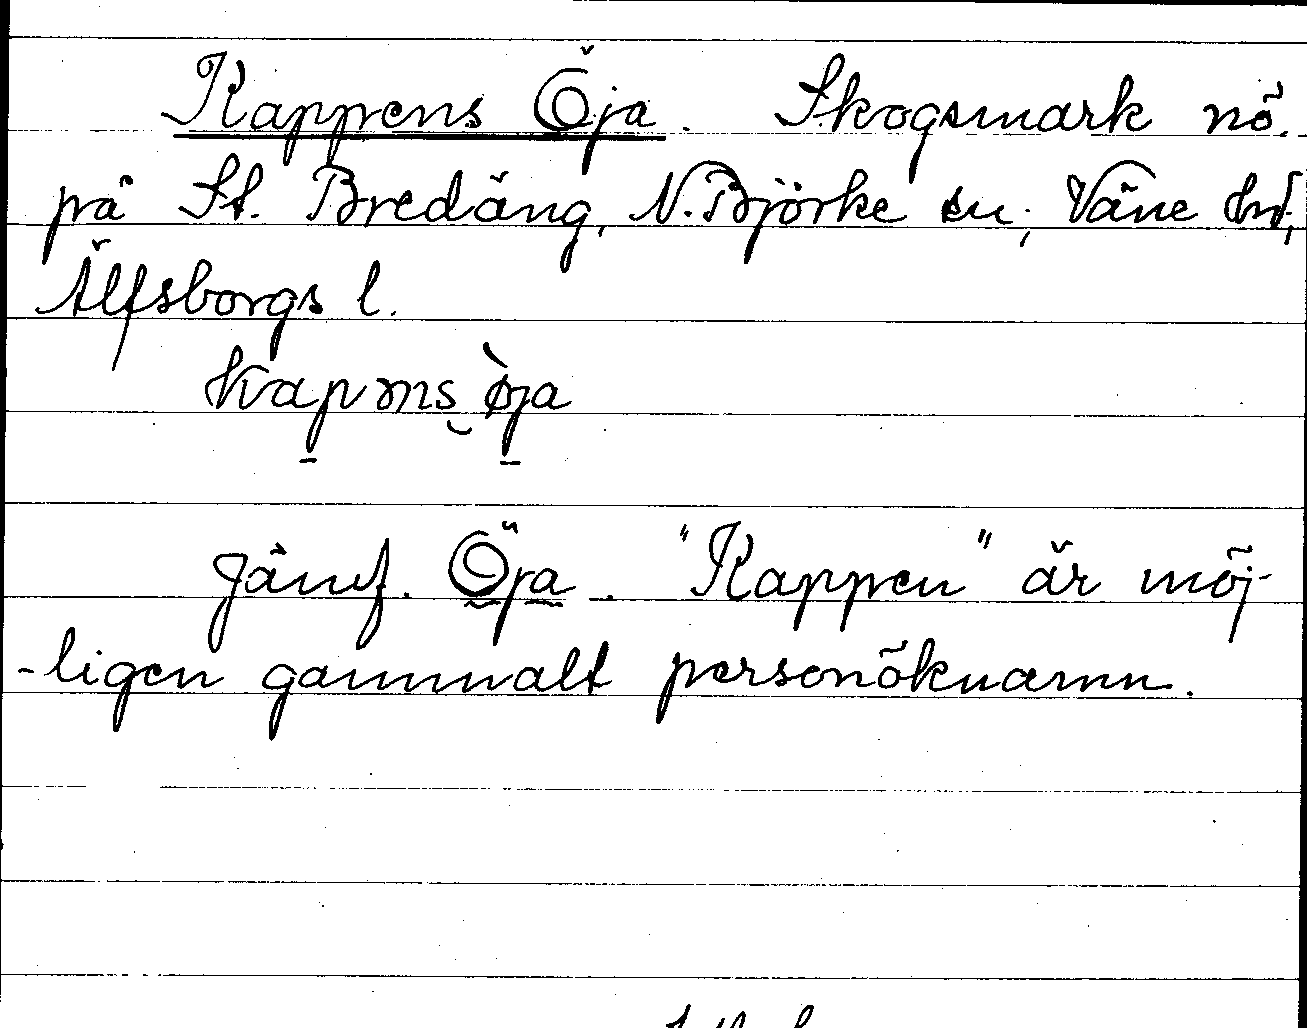 Kappens Öja. Skogsmark nö.
på St. Bredäng, N. Björke sn; Väne hd,
Älfsborgs l.
kapms øja
Jämf. Öja. "Kappen" är möj-
-ligen gammalt personöknamn.